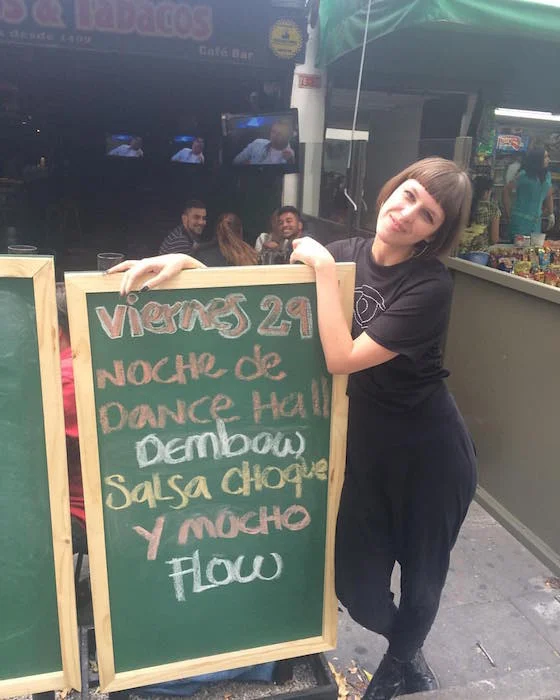 & TABACOS
desde 1409
Café Bar
Viernes 29
NOCHE de
DANCE Hall
DEMBOW
SALSA CHOQUE
Y MUCHO
FLOW